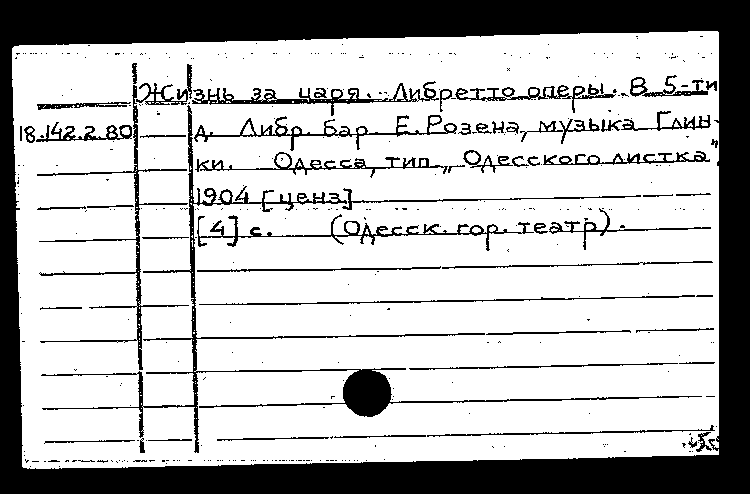 Жизнь за царя. Либретто оперы. В 5-ти
18.142.2.80 д. Либр. бар. Е. Розена, музыка Глин-
ки. Одесса, тип. „Одесского листка",
1904 [ценз]
[4] с. (Одесск. гор. театр).